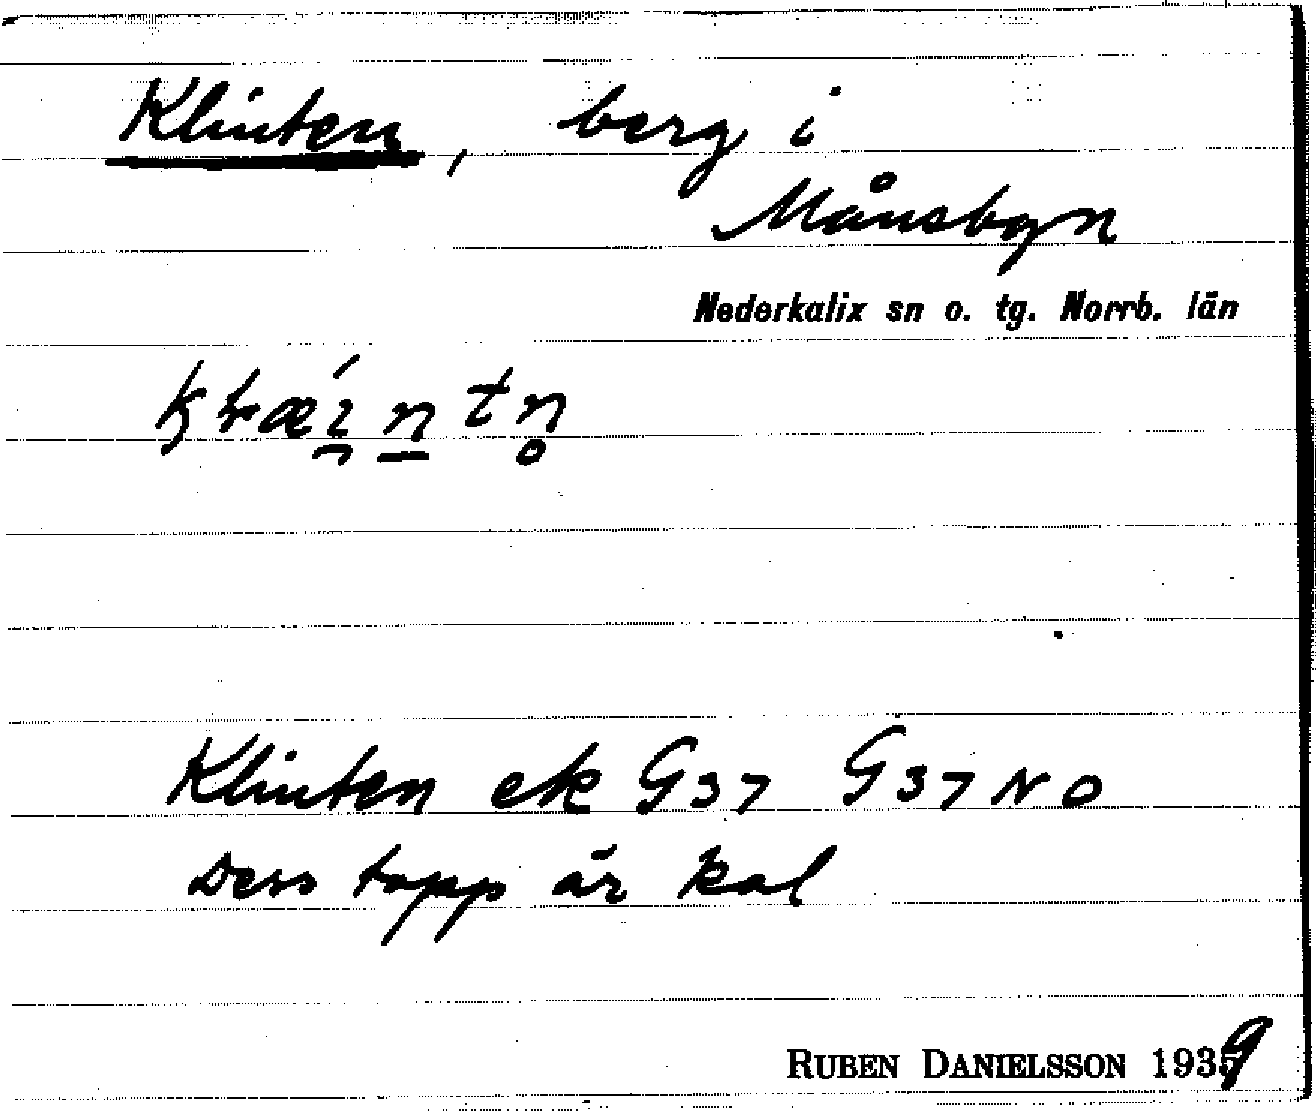 Klinten, berg i
Månsbyn
Nederkalix sn o. tg. Norrb. län
Klinten ek G37 G37NO
Dess topp är kal
RUBEN DANIELSSON 1939